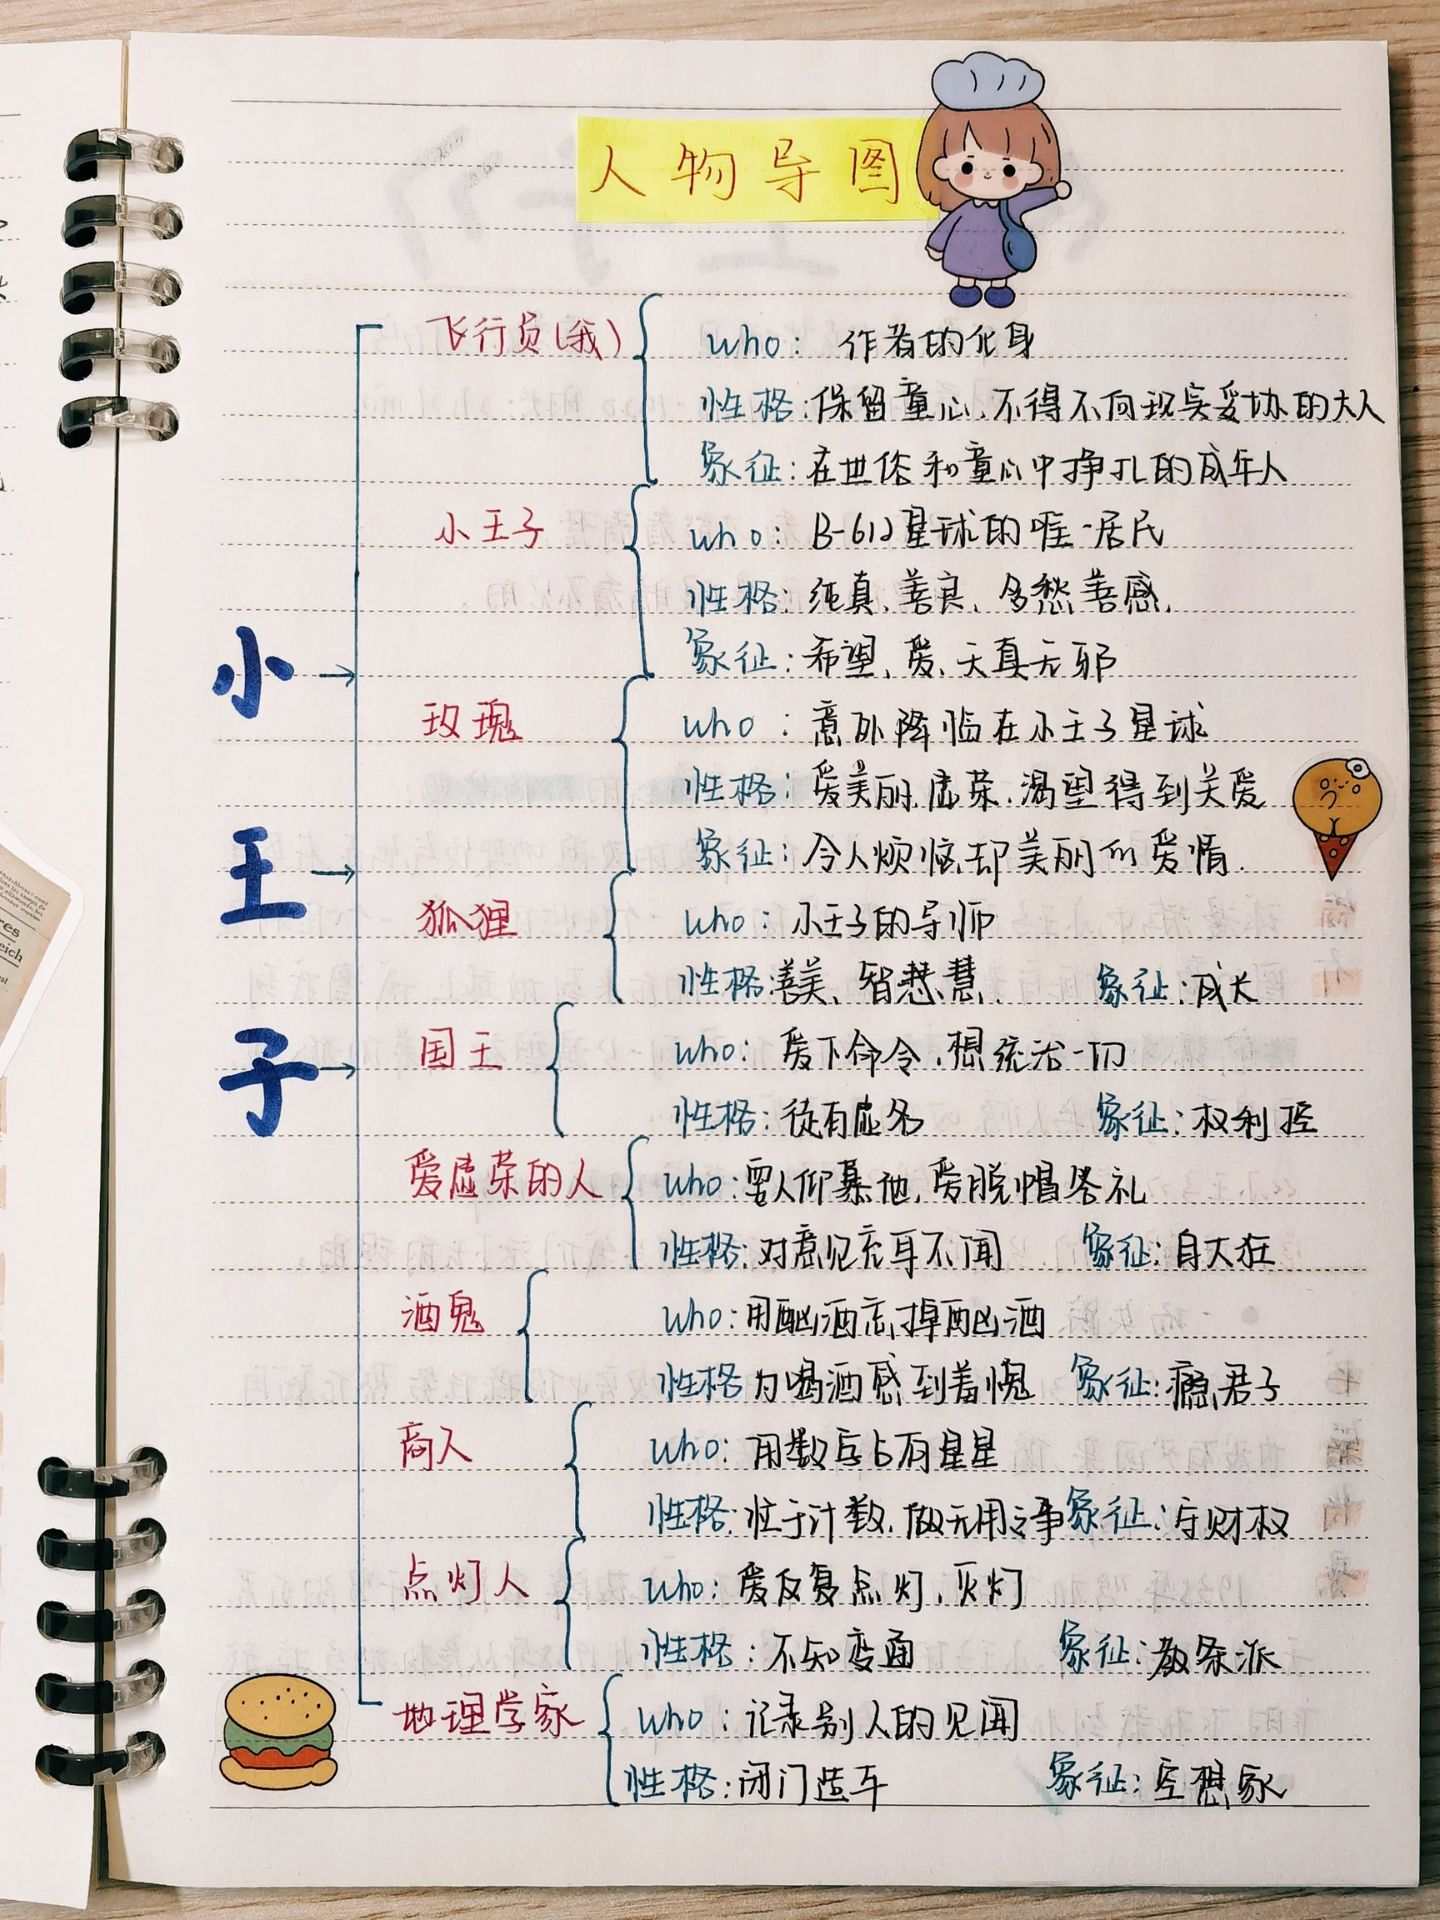 人物导图
小王子
飞行员(我)
who: 作者的化身
性格:保留童心、不得不向现实妥协的大人
象征:在世俗和童心中挣扎的成年人
小王子
who: B-612星球的唯一居民
性格:纯真、善良、多愁善感、
象征:希望、爱、天真无邪
玫瑰
who:意外降临在小王子星球
性格:爱美丽、虚荣、渴望得到关爱
象征:令人烦恼却美丽的爱情.
狐狸
who:小王子的导师
性格:善美、智慧 象征:成长
国王
who:爱下命令、想统治一切
性格:徒有虚名 象征:权利控
爱虚荣的人
who:要人仰慕他,爱脱帽答礼
性格:对意见充耳不闻 象征:自大狂
酒鬼
who:用酗酒忘掉酗酒
性格 为喝酒感到羞愧 象征:瘾君子
商人
who:用数字占有星星
性格:忙于计数、做无用之事 象征:守财权
点灯人
who:爱反复点灯、灭灯
性格:不知变通 象征:教条派
地理学家
who:记录别人的见闻
性格:闭门造车 象征:空想家
res
eich